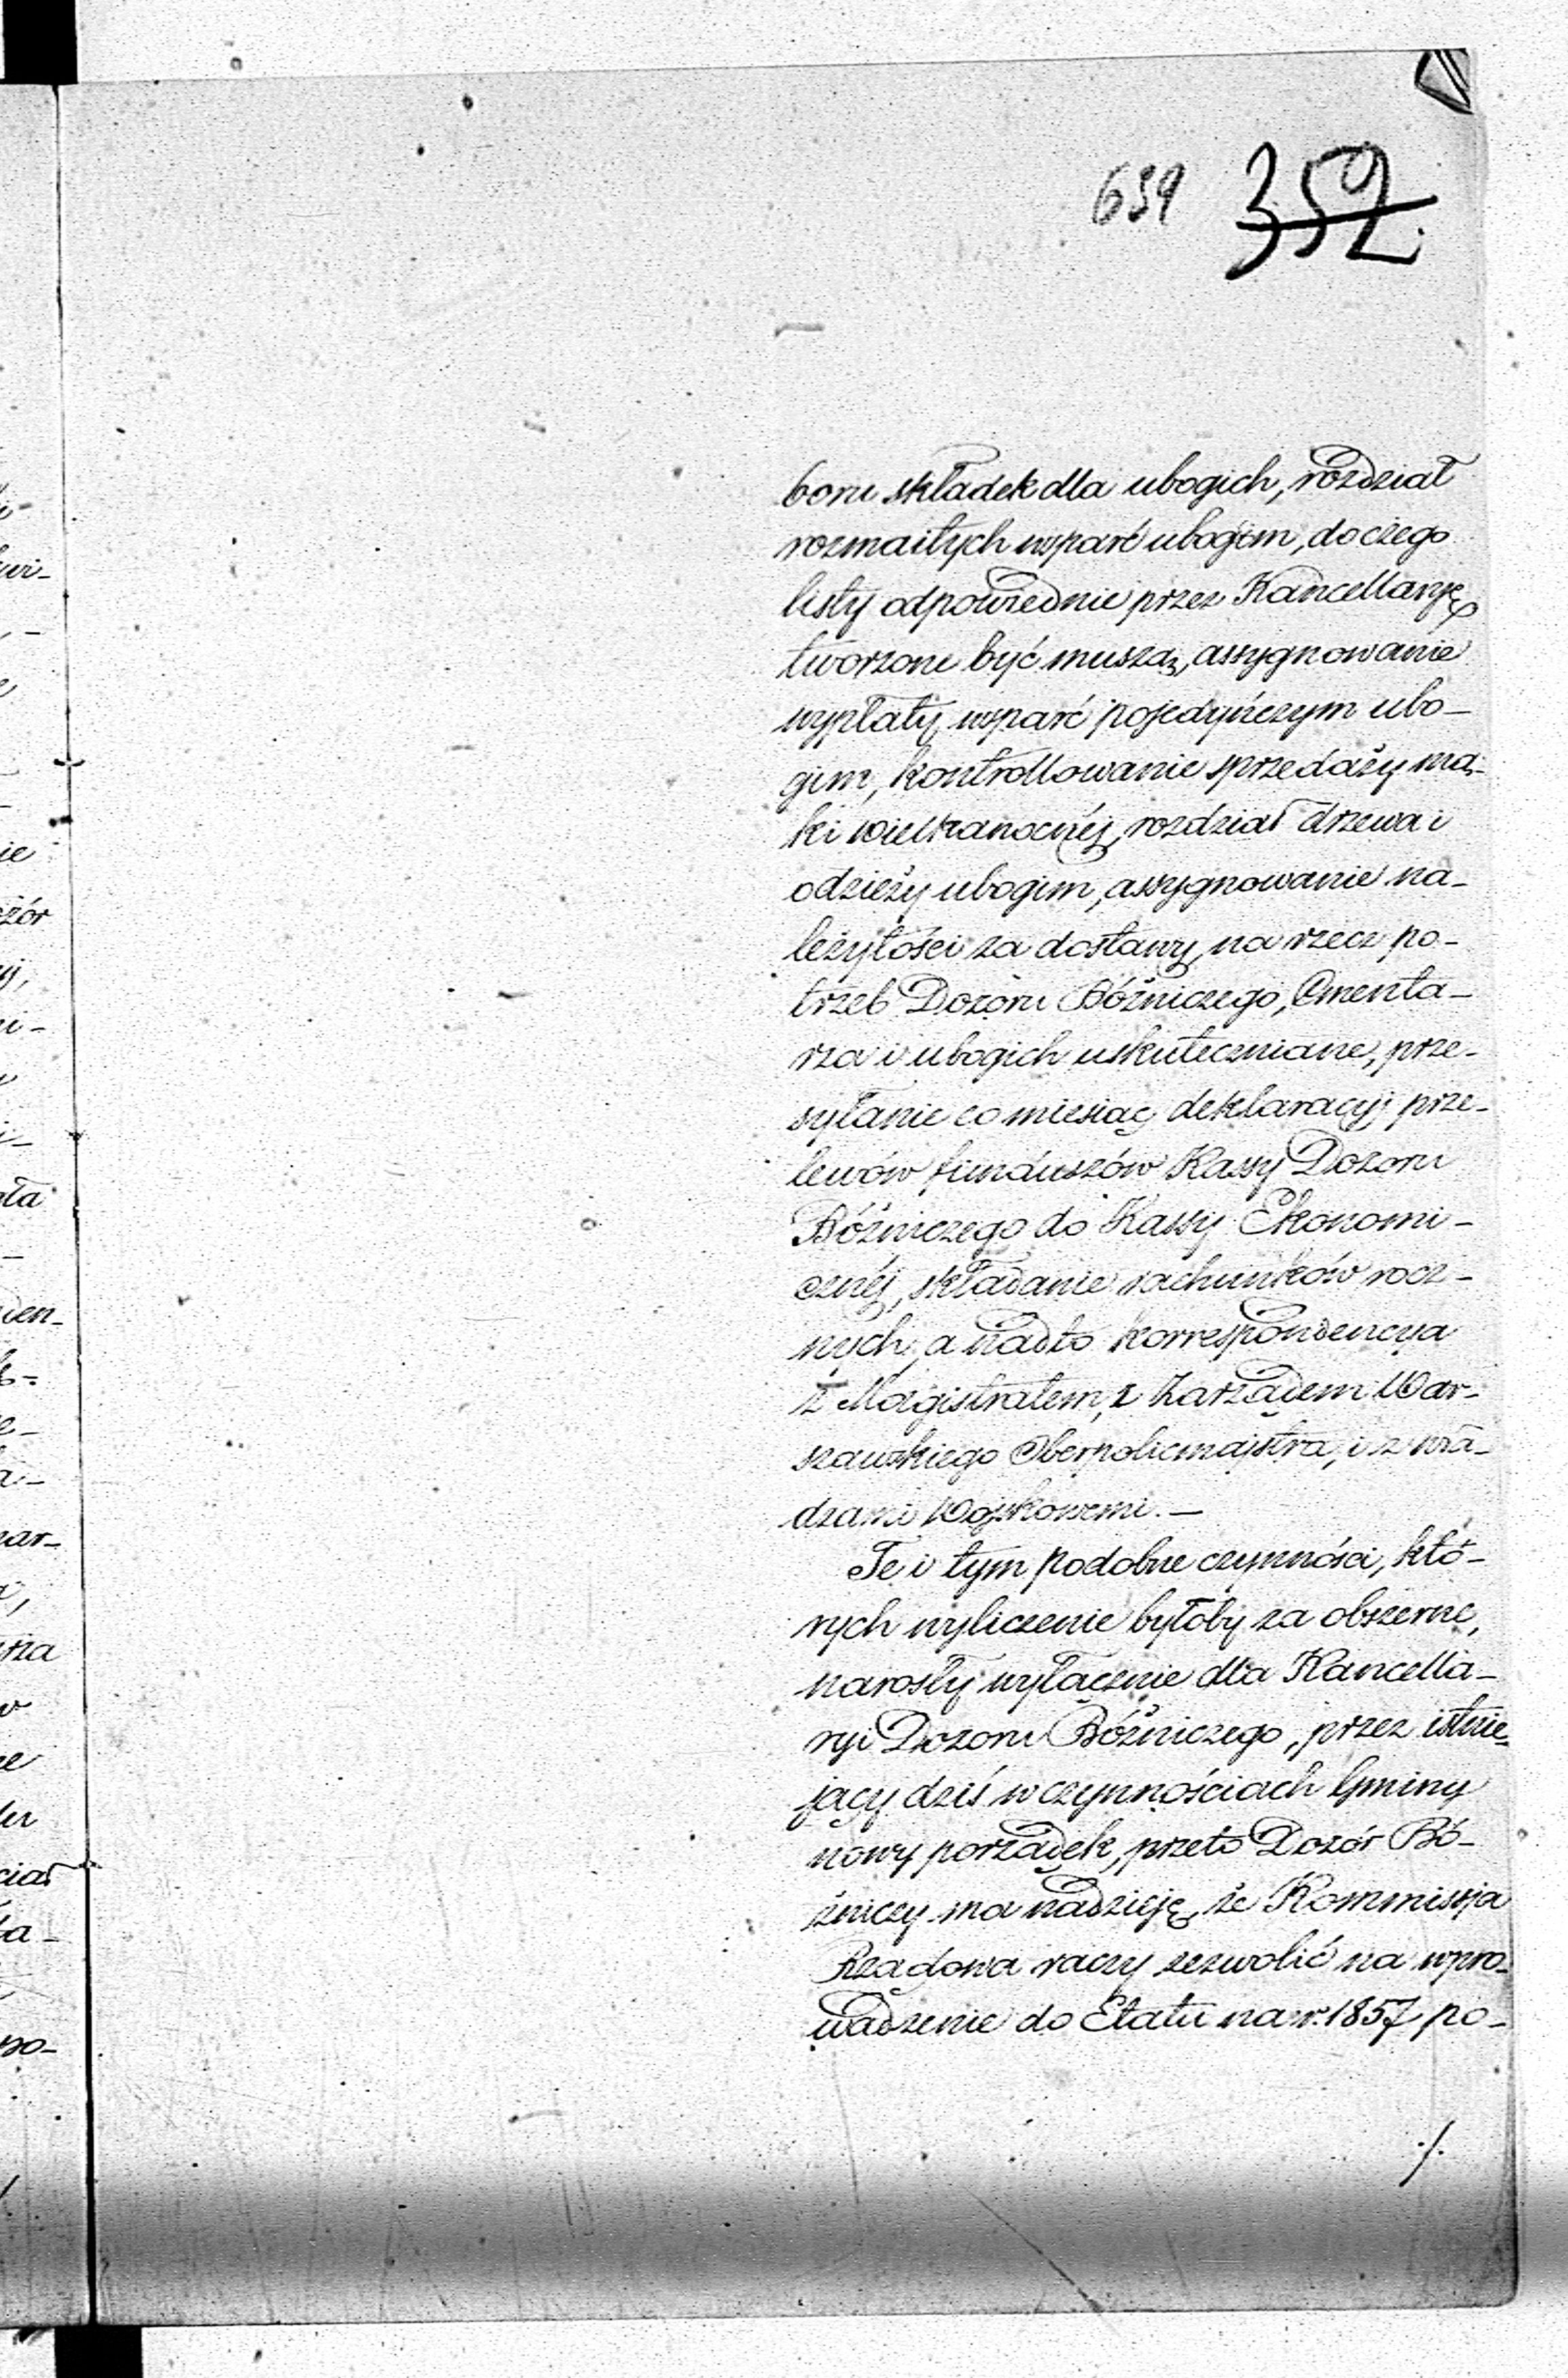 659 352
boru składek dla ubogich, rozdział
rozmaitych wsparć ubogim, do czego
listy odpowiednie przez Kancellaryę
tworzone być muszą, assygnowanie
wypłaty wsparć pojedyńczym ubo-
gim, kontrollowanie sprzedaży mą-
ki wielkanocnéj, rozdział drzewa i
odzieży ubogim, assygnowanie na-
leżytości za dostawy na rzecz po-
trzeb Dozoru Bóżniczego, Cmenta-
rza i ubogich uskuteczniane, prze-
syłanie co miesiąc deklaracyj prze-
lewów funduszów Kassy Dozoru
Bóżniczego do Kassy Ekonomi-
cznéj, składanie rachunków rocz-
nych, a nadto korrespondencya
z Magistratem, z Zarządem War-
szawskiego Oberpolicmajstra, i z wła-
dzami Wojskowemi. —
Te i tym podobne czynności, któ-
rych wyliczenie byłoby za obszerne,
narosły wyłącznie dla Kancella-
ryi Dozoru Bóżniczego, przez istnie-
jący dziś w czynnościach Gminy
nowy porządek, przeto Dozór Bó-
żniczy ma nadzieję, że Kommissja
Rządowa raczy zezwolić na wpro-
wadzenie do Etatu na r. 1857 po-
./.